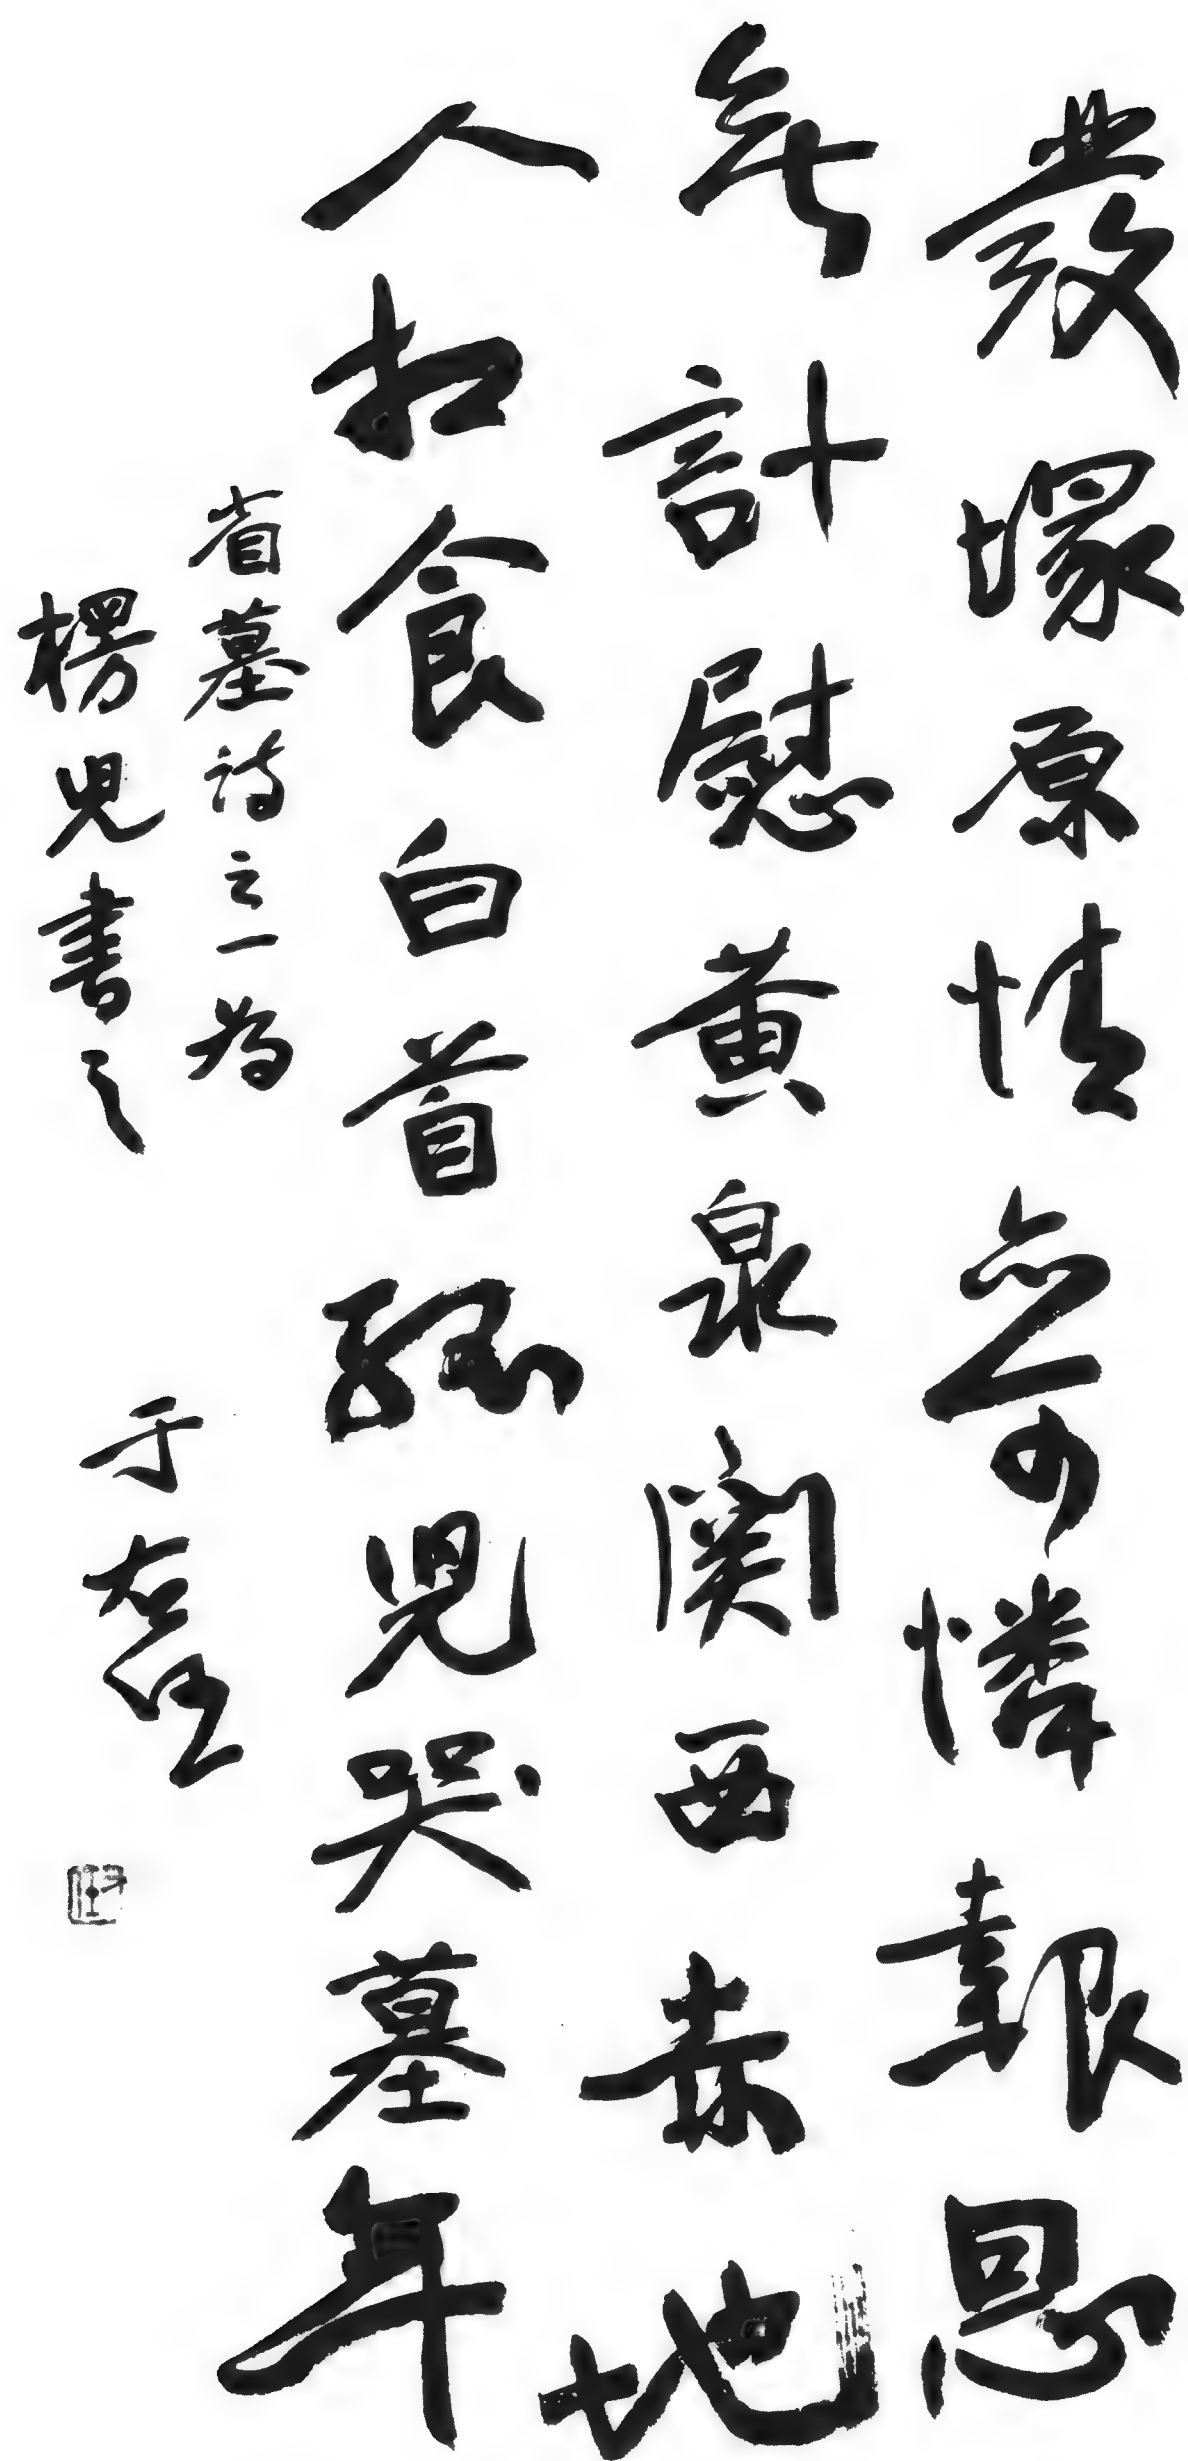 發塚原情亦可憐報恩
無計慰黃泉關西赤地
人相食白首孤兒哭墓年
省墓詩之一為
楞兒書之
于右任
右任